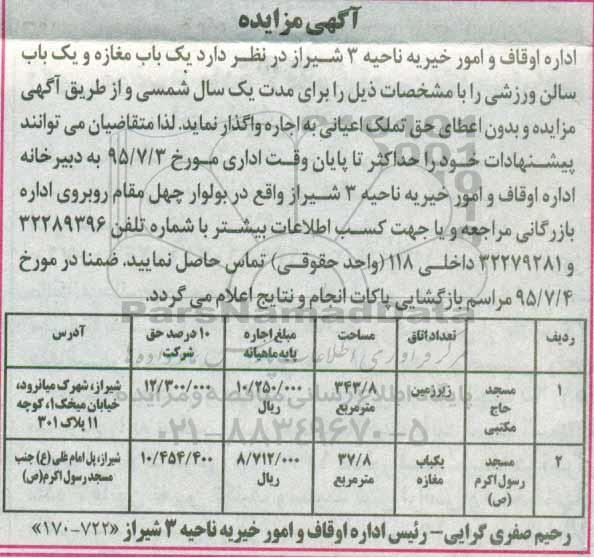 آگهی مزایده
اداره اوقاف و امور خیریه ناحیه ۳ شیراز در نظر دارد یک باب مغازه و یک باب
سالن ورزشی را با مشخصات ذیل را برای مدت یک سال شمسی و از طریق آگهی
مزایده و بدون اعطای حق تملک اعیانی به اجاره واگذار نماید. لذا متقاضیان می توانند
پیشنهادات خود را حداکثر تا پایان وقت اداری مورخ ۹۵/۷/۳ به دبیرخانه
اداره اوقاف و امور خیریه ناحیه ۳ شیراز واقع در بولوار چهل مقام روبروی اداره
بازرگانی مراجعه و یا جهت کسب اطلاعات بیشتر با شماره تلفن ۳۲۲۸۹۳۹۶
و ۳۲۲۷۹۲۸۱ داخلی ۱۱۸ (واحد حقوقی) تماس حاصل نمایید. ضمنا در مورخ
۹۵/۷/۴ مراسم بازگشایی پاکات انجام و نتایج اعلام می گردد.
ParsNamadData
ردیف تعداد اتاق مساحت مبلغ اجاره پایه ماهیانه ۱۰ درصد حق شرکت آدرس
۱ مسجد حاج مکتبی زیرزمین ۳۴۳/۸ مترمربع ۱۰/۲۵۰/۰۰۰ ریال ۱۲/۳۰۰/۰۰۰ شیراز، شهرک میانرود، خیابان میخک ۱، کوچه ۱۱ پلاک ۳۰۱
پایگاه اطلاع رسانی مناقصه و مزایده
۰۲۱-۸۸۳۴۹۶۷۰-۵
۲ مسجد رسول اکرم (ص) یکباب مغازه ۳۷/۸ مترمربع ۸/۷۱۲/۰۰۰ ریال ۱۰/۴۵۴/۴۰۰ شیراز، پل امام علی (ع) جنب مسجد رسول اکرم (ص)
رحیم صفری گرایی - رئیس اداره اوقاف و امور خیریه ناحیه ۳ شیراز «۷۲۲-۱۷۰»